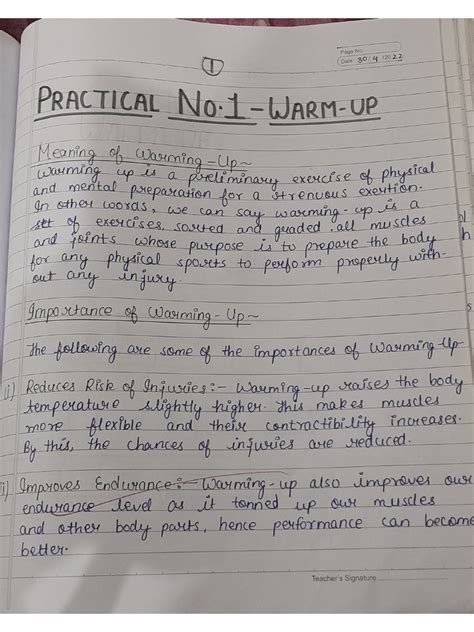 1
Page No.
Date 30/4/2022
PRACTICAL NO.1-WARM-UP
Meaning of Warming-Up~
Warming up is a preliminary exercise of physical
and mental preparation for a strenuous exertion.
In other words, we can say warming-up is a
set of exercises, sorted and graded all muscles
and joints whose purpose is to prepare the body
for any physical sports to perform properly with-
out any injury.
Importance of Warming-Up~
The following are some of the importances of Warming-Up-
(i) Reduces Risk of Injuries:- Warming-up raises the body
temperature slightly higher. This makes muscles
more flexible and their contractibility increases.
By this, the chances of injuries are reduced.
ii) Improves Endurance:- Warming-up also improves our
endurance level as it tonned up our muscles
and other body parts, hence performance can become
better.
Teacher's Signature